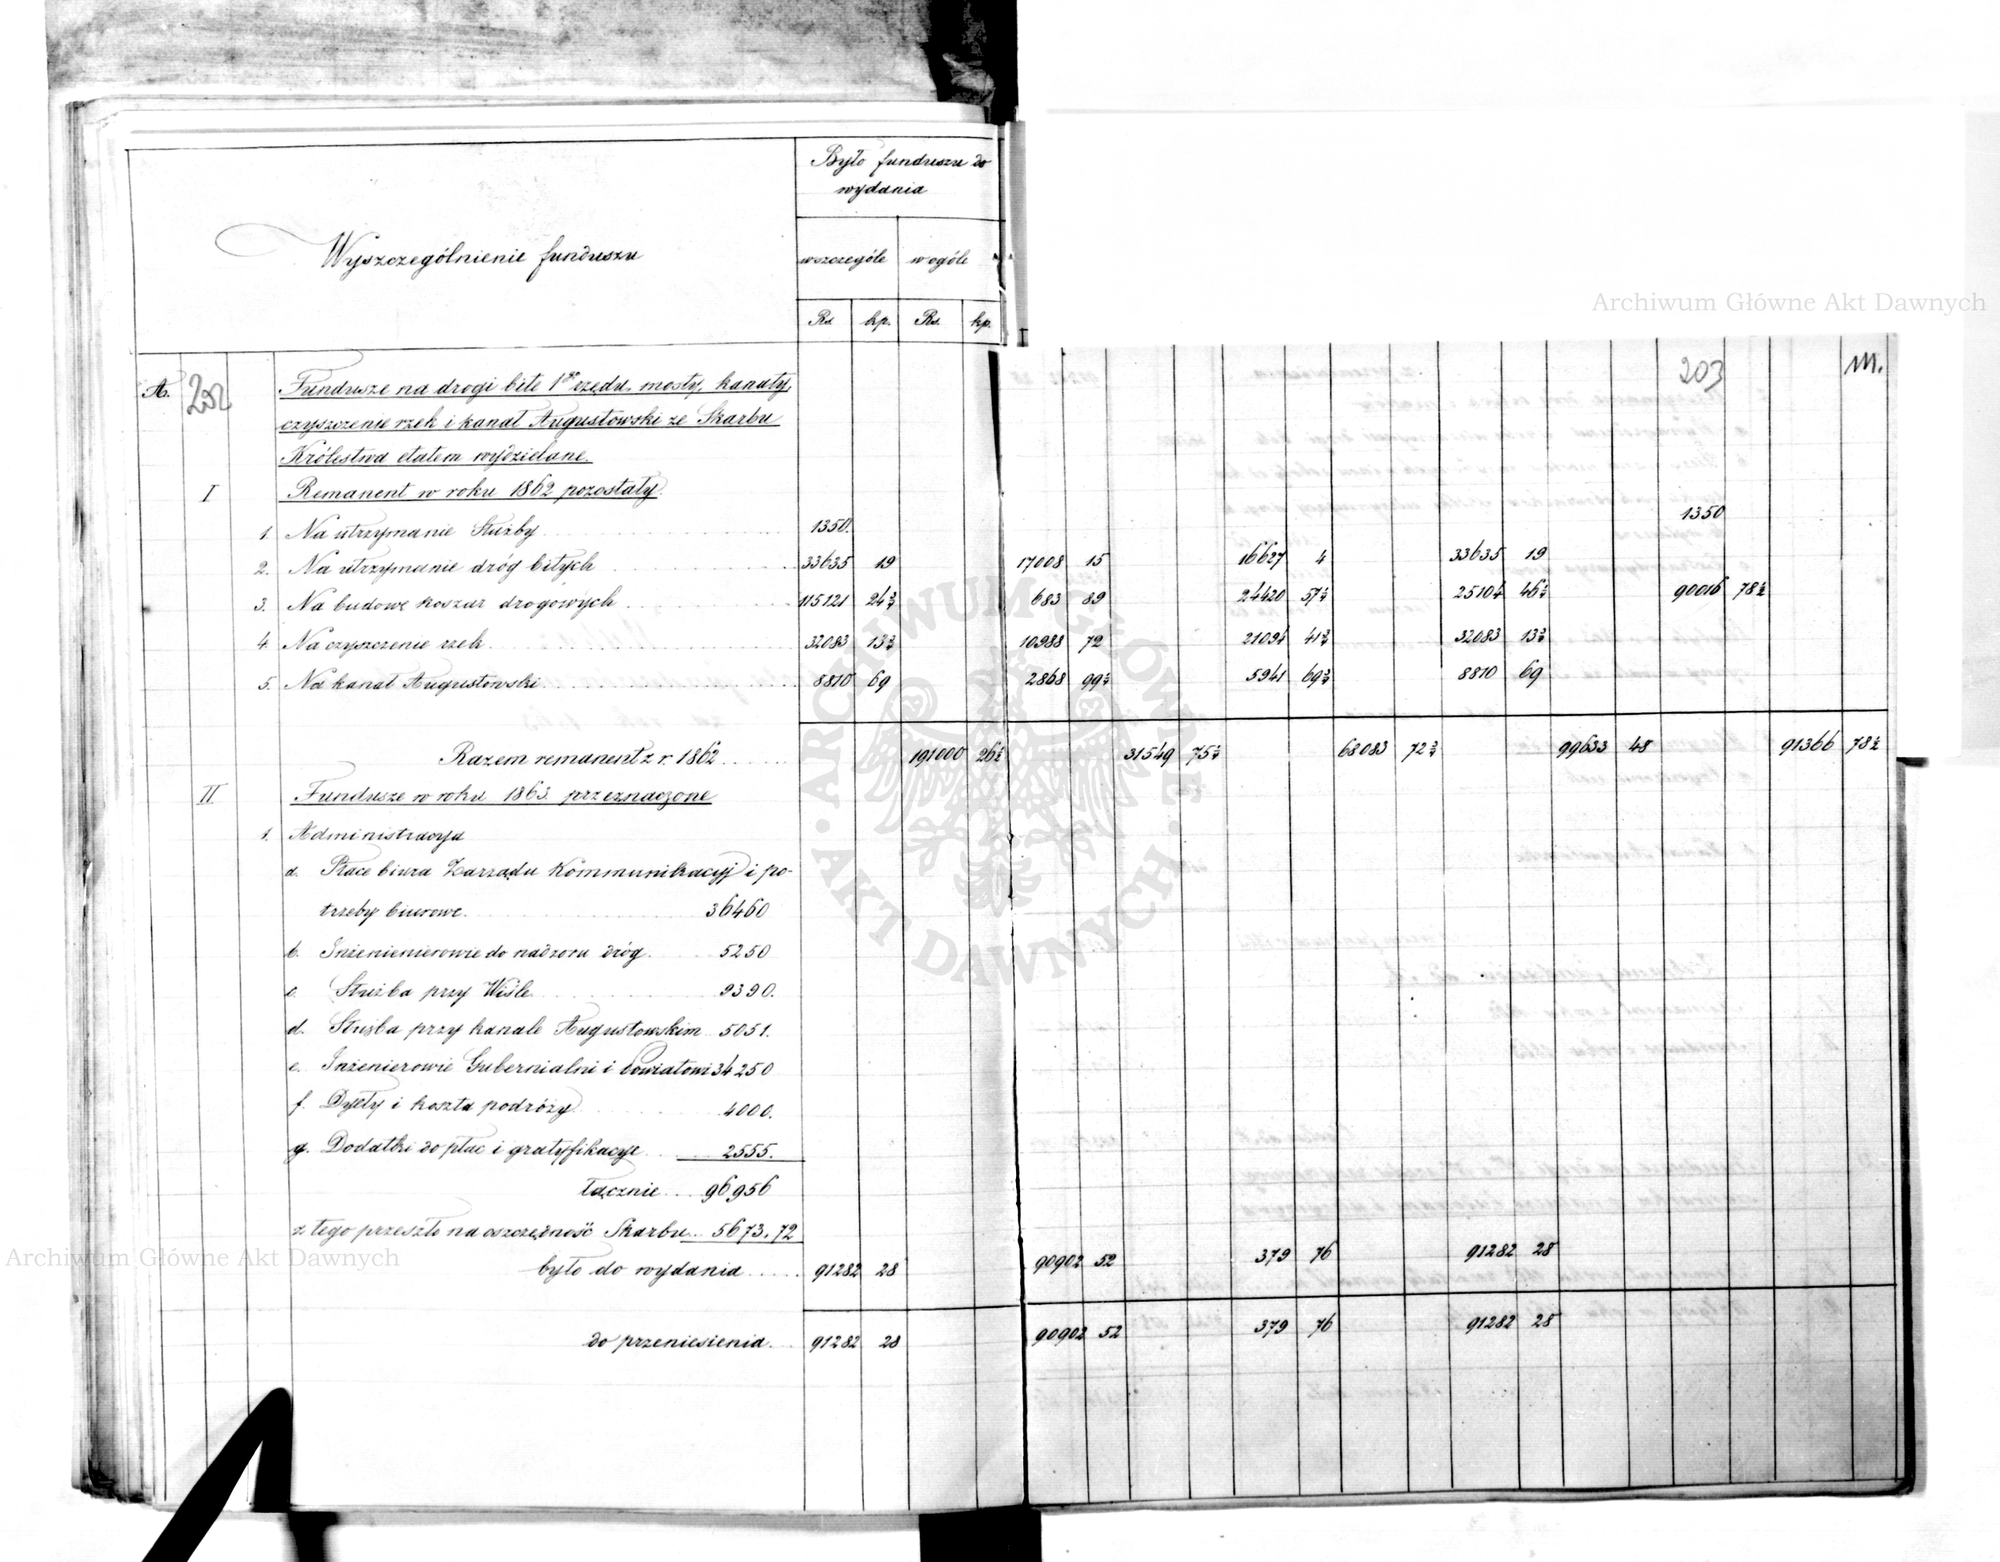 Było funduszu do
wydania
Wyszczególnienie funduszu
wszczególe wogóle
Rs. kp. Rs. kp.
Archiwum Główne Akt Dawnych
203 M.
A. 202 Fundusze na drogi bite 1go rzędu, mosty, kanały,
czyszczenie rzek i kanał Augustowski ze Skarbu
Królestwa etatem wydzielane.
I Remanent w roku 1862 pozostały.
1. Na utrzymanie Służby 1350. 1350
2. Na utrzymanie dróg bitych 33635 19 17008 15 16627 4 33635 19
3. Na budowę koszar drogowych 115121 24¾ 683 89 24420 57¾ 25104 46¾ 90016 78½
4. Na czyszczenie rzek 32083 13¾ 10988 72 21094 41¾ 32083 13¾
5. Na kanał Augustowski 8810 69 2868 99¾ 5941 69¾ 8810 69
Razem remanent z r. 1862 191000 26½ 31549 75¾ 68083 72¾ 99633 48 91366 78½
II. Fundusze w roku 1863 przeznaczone
1. Administracya
a. Płace biura Zarządu Kommunikacyj i po-
trzeby biurowe. 36460
b. Inżenienierowie do nadzoru dróg. 5250
c. Służba przy Wiśle 9390.
d. Służba przy kanale Augustowskim 5051.
e. Inżenierowie Gubernialni i Powiatowi 34250
f. Dyety i koszta podróży 4000.
g. Dodatki do płac i gratyfikacye 2555.
łącznie 96956
z tego przeszło na oszczędność Skarbu 5673.72
było do wydania 91282 28 90902 52 379 76 91282 28
do przeniesienia 91282 28 90902 52 379 76 91282 28
Archiwum Główne Akt Dawnych
ARCHIWUM GŁÓWNE
AKT DAWNYCH